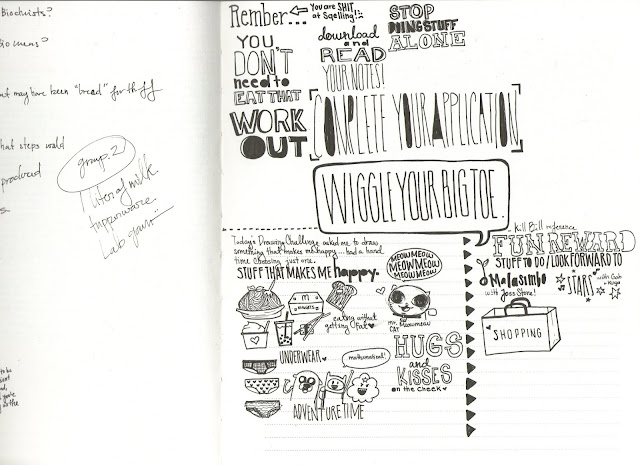 Biochists?
may have been "bread" for
that steps would
produced
group. 2
1 liter of milk
tupperware
Lab gown
Rember...
You are SHIT.
at Sqelling!
YOU
DON'T
need to
EAT THAT
WORK
OUT
download
and
READ
YOUR NOTES!
STOP
DOING STUFF
ALONE
CONPLETE YOUR APPLICATION
WIGGLE YOUR BIG TOE.
- Kill Bill reference
Today's Drawing Challenge asked me to draw
something that makes me happy... had a hard
time choosing just one.
STUFF THAT MAKES ME happy.
M
NUGGETS
eating without
getting fat
MEOW MEOW
MEOW MEOW
MEOW MEOW
mr.
cat
meow
UNDERWEAR
mathematical!
ADVENTURE TIME
HUGS
and
KISSES
on the cheek
FUN REWARD
STUFF TO DO/LOOK FORWARD TO
Malasimbo
with Joss Stone!
STARS
with Gab
SHOPPING